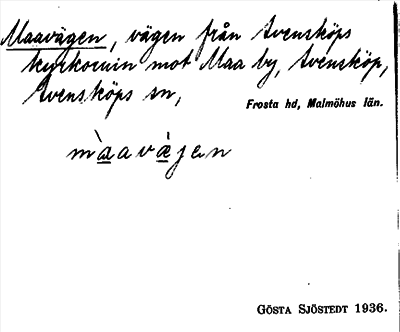 Maavägen, vägen från Svensköps
kyrkoruin mot Maa by, Svensköp,
Svensköps sn,
Frosta hd, Malmöhus län.
màavæ̀jen
GÖSTA SJÖSTEDT 1936.